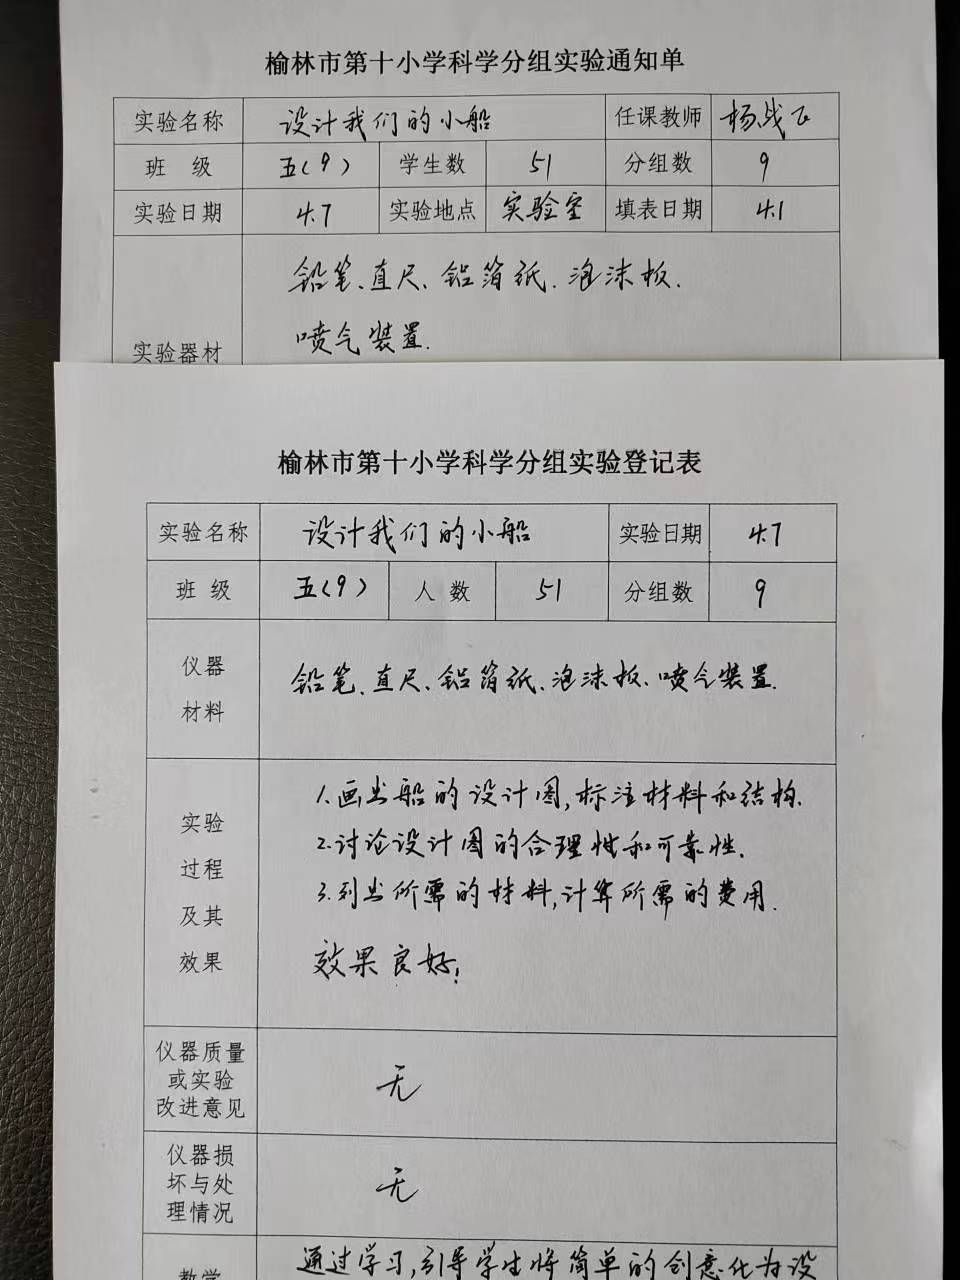 榆林市第十小学科学分组实验通知单
实验名称 设计我们的小船 任课教师 杨战飞
班 级 五(9) 学生数 51 分组数 9
实验日期 4.7 实验地点 实验室 填表日期 4.1
铅笔、直尺、铝箔纸、泡沫板、
喷气装置.
实验器材
榆林市第十小学科学分组实验登记表
实验名称 设计我们的小船 实验日期 4.7
班 级 五(9) 人 数 51 分组数 9
仪器
材料
铅笔、直尺、铝箔纸、泡沫板、喷气装置.
实验
过程
及其
效果
1.画出船的设计图,标注材料和结构.
2.讨论设计图的合理性和可靠性.
3.列出所需的材料,计算所需的费用.
效果良好!
仪器质量
或实验
改进意见
无
仪器损
坏与处
理情况
无
教学
通过学习,引导学生将简单的创意化为设